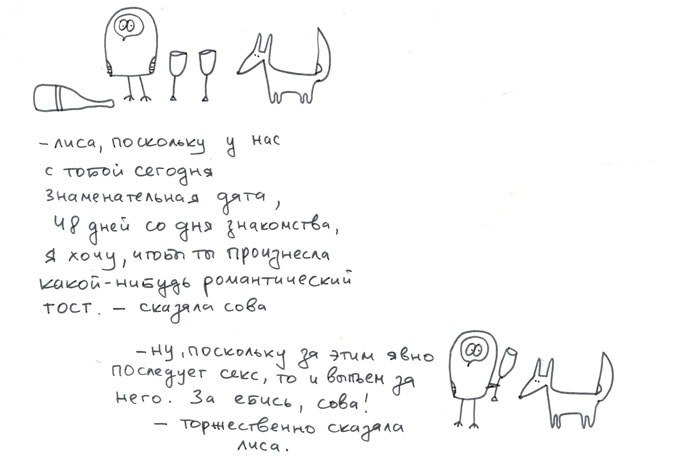 - лиса, поскольку у нас
с тобой сегодня
знаменательная дата,
48 дней со дня знакомства,
я хочу, чтобы ты произнесла
какой-нибудь романтический
тост. - сказала сова
- ну, поскольку за этим явно
последует секс, то и выпьем за
него. За ебись, сова!
- торжественно сказала
лиса.